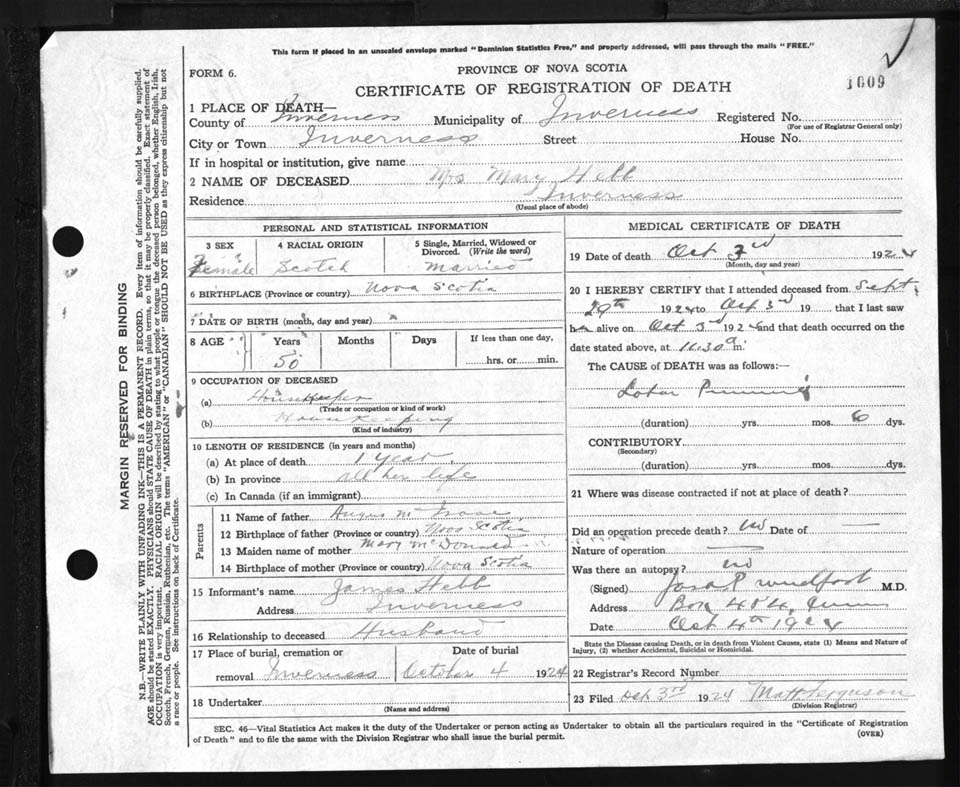 This form if placed in an unsealed envelope marked "Dominion Statistics Free," and properly addressed, will pass through the mails "FREE."
FORM 6.
PROVINCE OF NOVA SCOTIA
CERTIFICATE OF REGISTRATION OF DEATH
1609
1 PLACE OF DEATH—
County of Inverness Municipality of Inverness Registered No.
(For use of Registrar General only)
City or Town Inverness Street House No.
If in hospital or institution, give name
2 NAME OF DECEASED Mrs Mary Hebb
Residence Inverness
(Usual place of abode)
PERSONAL AND STATISTICAL INFORMATION
3 SEX 4 RACIAL ORIGIN 5 Single, Married, Widowed or Divorced. (Write the word)
Female Scotch Married
6 BIRTHPLACE (Province or country) Nova Scotia
7 DATE OF BIRTH (month, day and year)
8 AGE Years Months Days If less than one day,
50 hrs. or min.
9 OCCUPATION OF DECEASED
(a) Housekeeper
(Trade or occupation or kind of work)
(b) Housekeeping
(Kind of industry)
10 LENGTH OF RESIDENCE (in years and months)
(a) At place of death 1 Year
(b) In province all her life
(c) In Canada (if an immigrant)
Parents
11 Name of father Angus Mc Isaac
12 Birthplace of father (Province or country) Nova Scotia
13 Maiden name of mother Mary McDonald
14 Birthplace of mother (Province or country) Nova Scotia
15 Informant's name James Hebb
Address Inverness
16 Relationship to deceased Husband
17 Place of burial, cremation or removal Inverness
Date of burial October 4 1924
18 Undertaker
(Name and address)
MEDICAL CERTIFICATE OF DEATH
19 Date of death Oct 3rd 1924
(Month, day and year)
20 I HEREBY CERTIFY that I attended deceased from Sept.
29th 1924 to Oct 3rd 19 that I last saw
her alive on Oct 3rd 192 4 and that death occurred on
date stated above, at 11.30 a m.
The CAUSE of DEATH was as follows:—
Lobar
(duration) yrs. mos. 6 dys.
CONTRIBUTORY
(Secondary)
(duration) yrs. mos. dys.
21 Where was disease contracted if not at place of death?
Did an operation precede death? no Date of
Nature of operation
Was there an autopsy? no
(Signed) M.D.
Address Box 454,
Date Oct 4th 1924
State the Disease causing Death, or in death from Violent Causes, state (1) Means and Nature of
Injury, (2) whether Accidental, Suicidal or Homicidal.
22 Registrar's Record Number
23 Filed Oct 3rd 1924 Matt Ferguson
(Division Registrar)
SEC. 46—Vital Statistics Act makes it the duty of the Undertaker or person acting as Undertaker to obtain all the particulars required in the "Certificate of Registration
of Death" and to file the same with the Division Registrar who shall issue the burial permit.
(OVER)
MARGIN RESERVED FOR BINDING
N.B.—WRITE PLAINLY WITH UNFADING INK—THIS IS A PERMANENT RECORD. Every item of information should be carefully supplied.
AGE should be stated EXACTLY. PHYSICIANS should STATE CAUSE OF DEATH in plain terms, so that it may be properly classified. Exact statement of
OCCUPATION is very important. RACIAL ORIGIN will be described by stating to what people or tongue the deceased person belonged, whether English, Irish,
Scotch, French, German, Russian, Ruthenian, etc. The terms "AMERICAN" or "CANADIAN" SHOULD NOT BE USED as they express citizenship but not
a race or people. See instructions on back of Certificate.